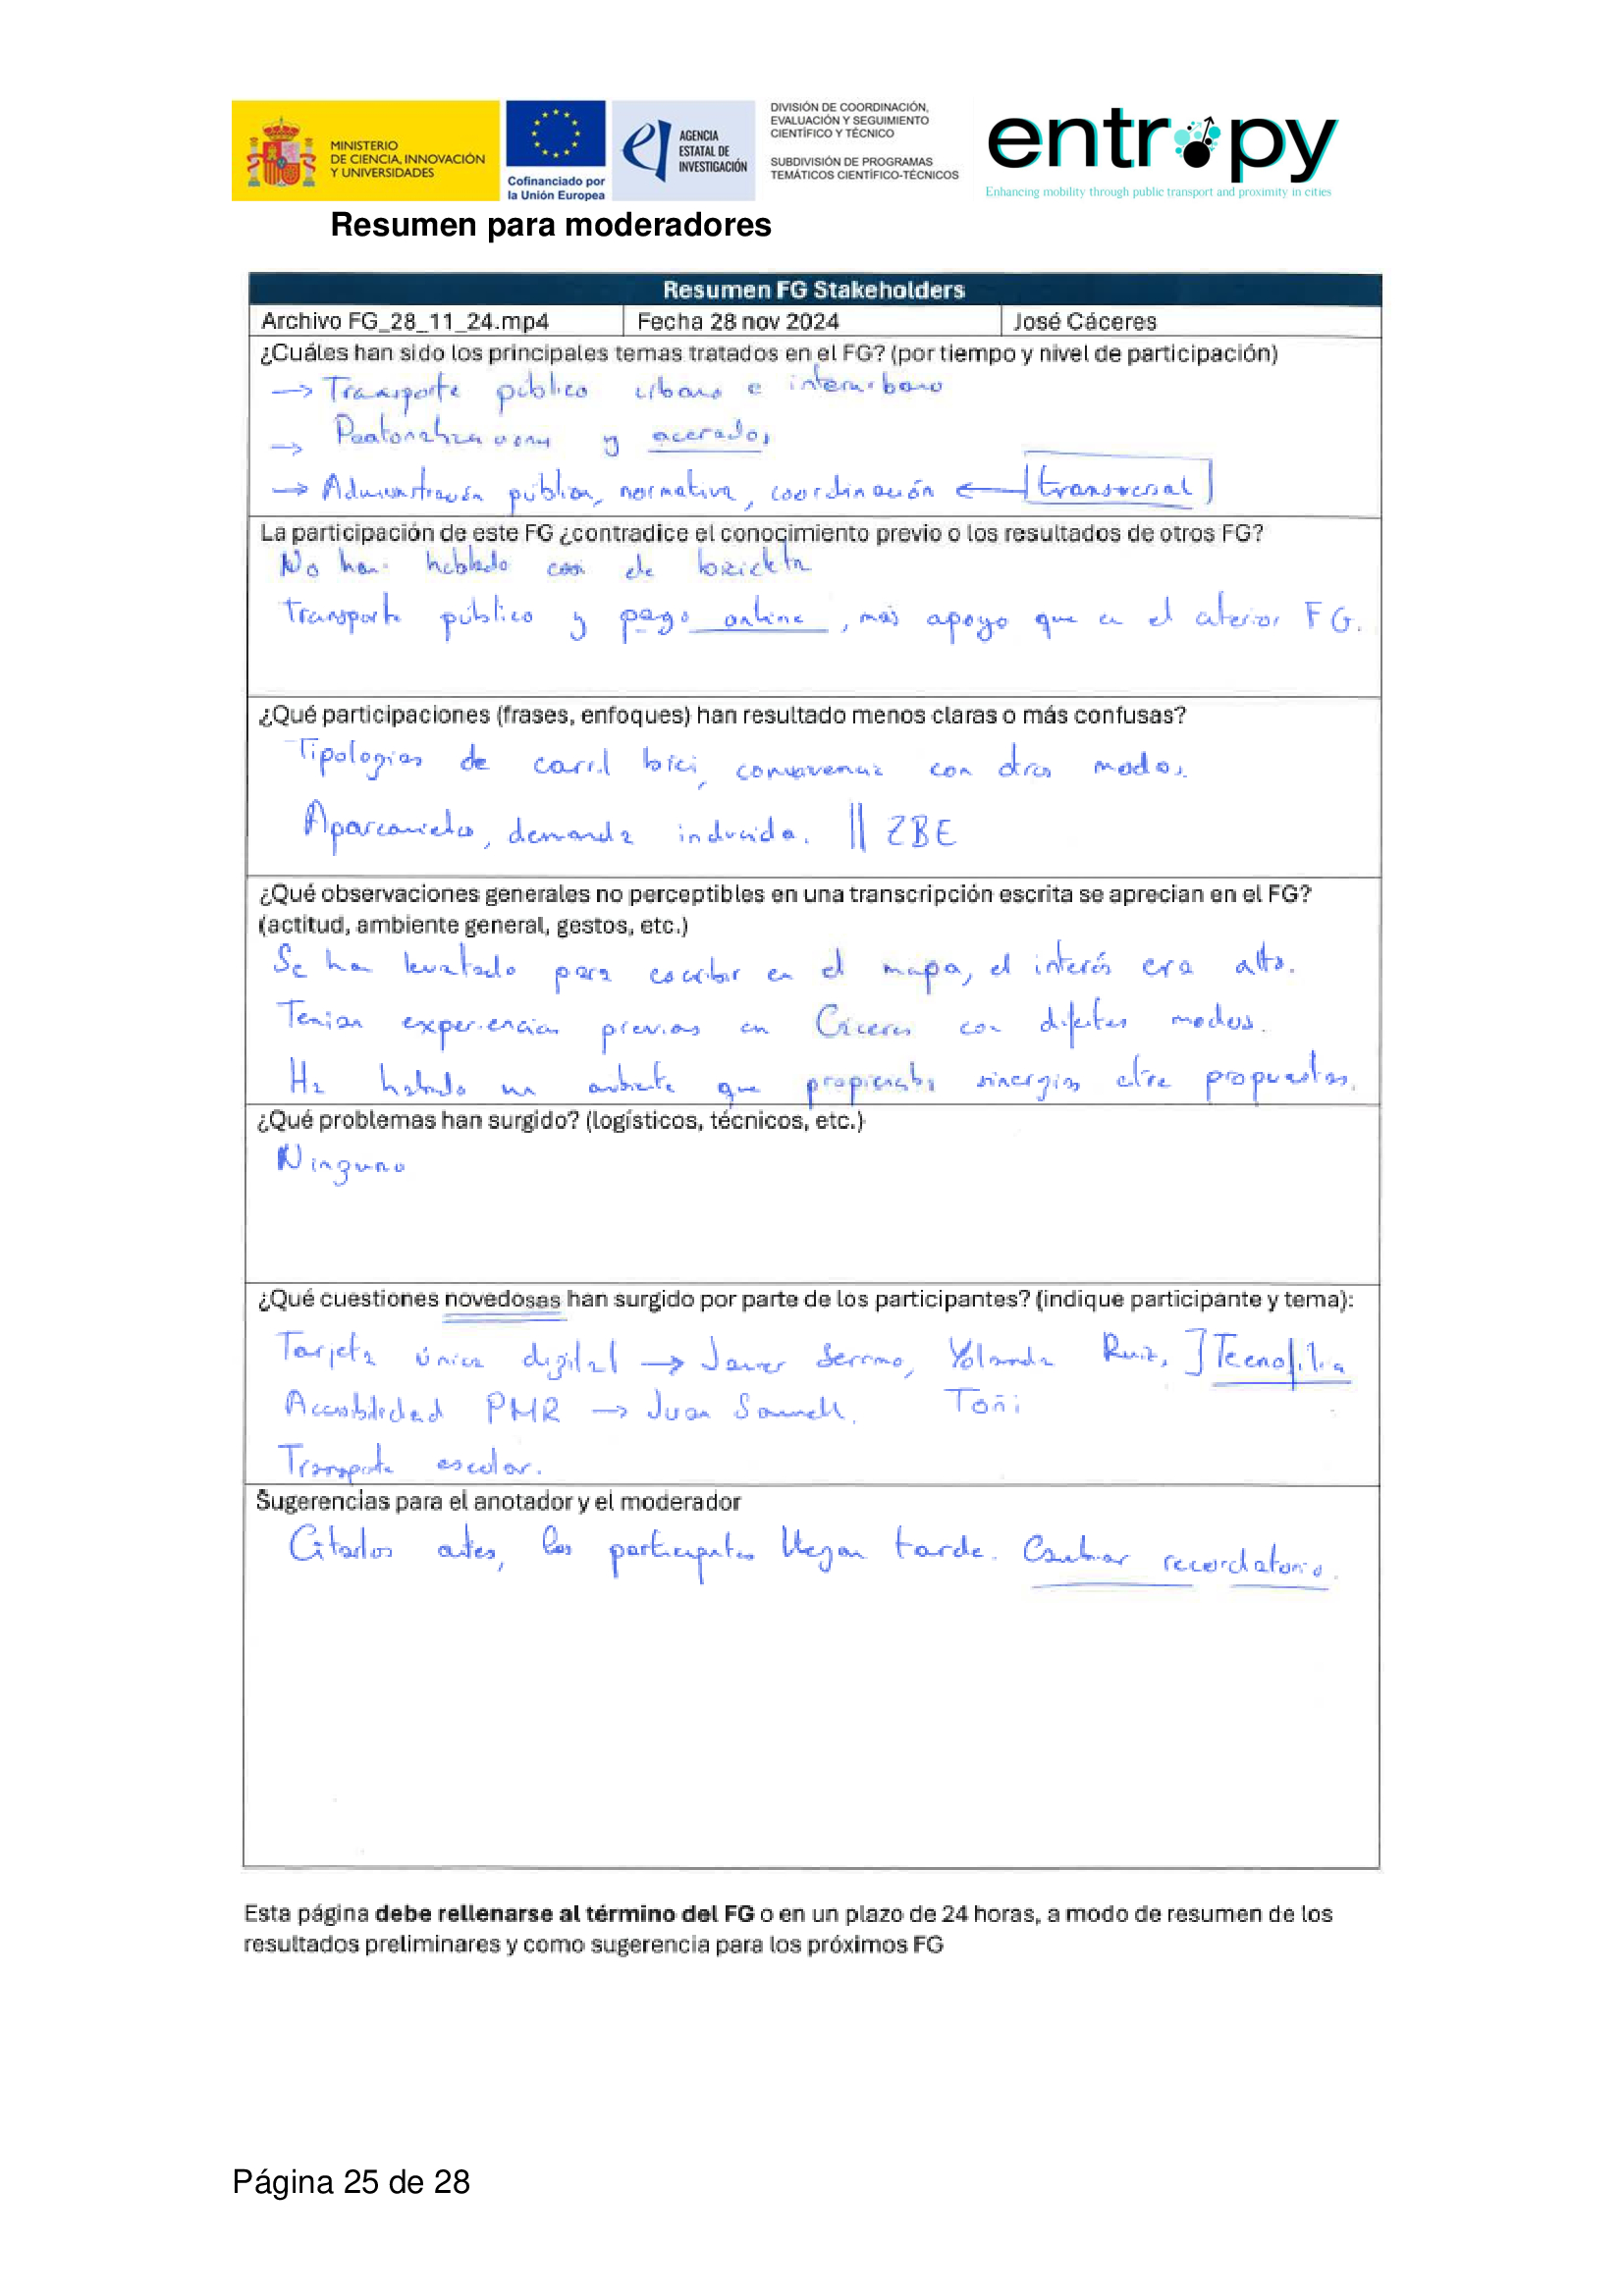 MINISTERIO
DE CIENCIA, INNOVACIÓN
Y UNIVERSIDADES
Cofinanciado por
la Unión Europea
AGENCIA
ESTATAL DE
INVESTIGACIÓN
DIVISIÓN DE COORDINACIÓN,
EVALUACIÓN Y SEGUIMIENTO
CIENTÍFICO Y TÉCNICO
SUBDIVISIÓN DE PROGRAMAS
TEMÁTICOS CIENTÍFICO-TÉCNICOS
entropy
Enhancing mobility through public transport and proximity in cities
Resumen para moderadores
Resumen FG Stakeholders
Archivo FG_28_11_24.mp4 Fecha 28 nov 2024 José Cáceres
¿Cuáles han sido los principales temas tratados en el FG? (por tiempo y nivel de participación)
→ Transporte público urbano e interurbano
→ Peatonalizaciones y acerados
→ Administración pública, normativa, coordinación ← transversal
La participación de este FG ¿contradice el conocimiento previo o los resultados de otros FG?
No han hablado casi de bicicleta
Transporte público y pago online, más apoyo que en el anterior FG.
¿Qué participaciones (frases, enfoques) han resultado menos claras o más confusas?
Tipologías de carril bici, convivencia con otros modos.
Aparcamientos, demanda inducida. || ZBE
¿Qué observaciones generales no perceptibles en una transcripción escrita se aprecian en el FG?
(actitud, ambiente general, gestos, etc.)
Se han levantado para escribir en el mapa, el interés era alto.
Tenían experiencias previas en Cáceres con diferentes modos.
Ha habido un ambiente que propiciaba sinergias entre propuestas.
¿Qué problemas han surgido? (logísticos, técnicos, etc.)
Ninguno
¿Qué cuestiones novedosas han surgido por parte de los participantes? (indique participante y tema):
Tarjeta única digital → Javier Serrano, Yolanda Ruiz, ] Tecnofilia
Accesibilidad PMR → Juan Toñi
Transporte escolar.
Sugerencias para el anotador y el moderador
Citarlos antes, los participantes llegan tarde. Cambiar recordatorio.
Esta página debe rellenarse al término del FG o en un plazo de 24 horas, a modo de resumen de los
resultados preliminares y como sugerencia para los próximos FG
Página 25 de 28